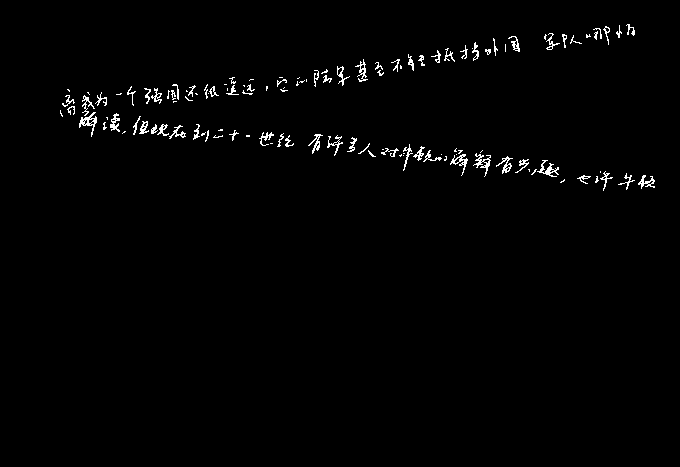 离成为一个强国还很遥远，它的陆军甚至不能抵挡外国军队哪怕
解读，但现在到二十一世纪有许多人对牛顿的解释有兴趣，也许牛顿